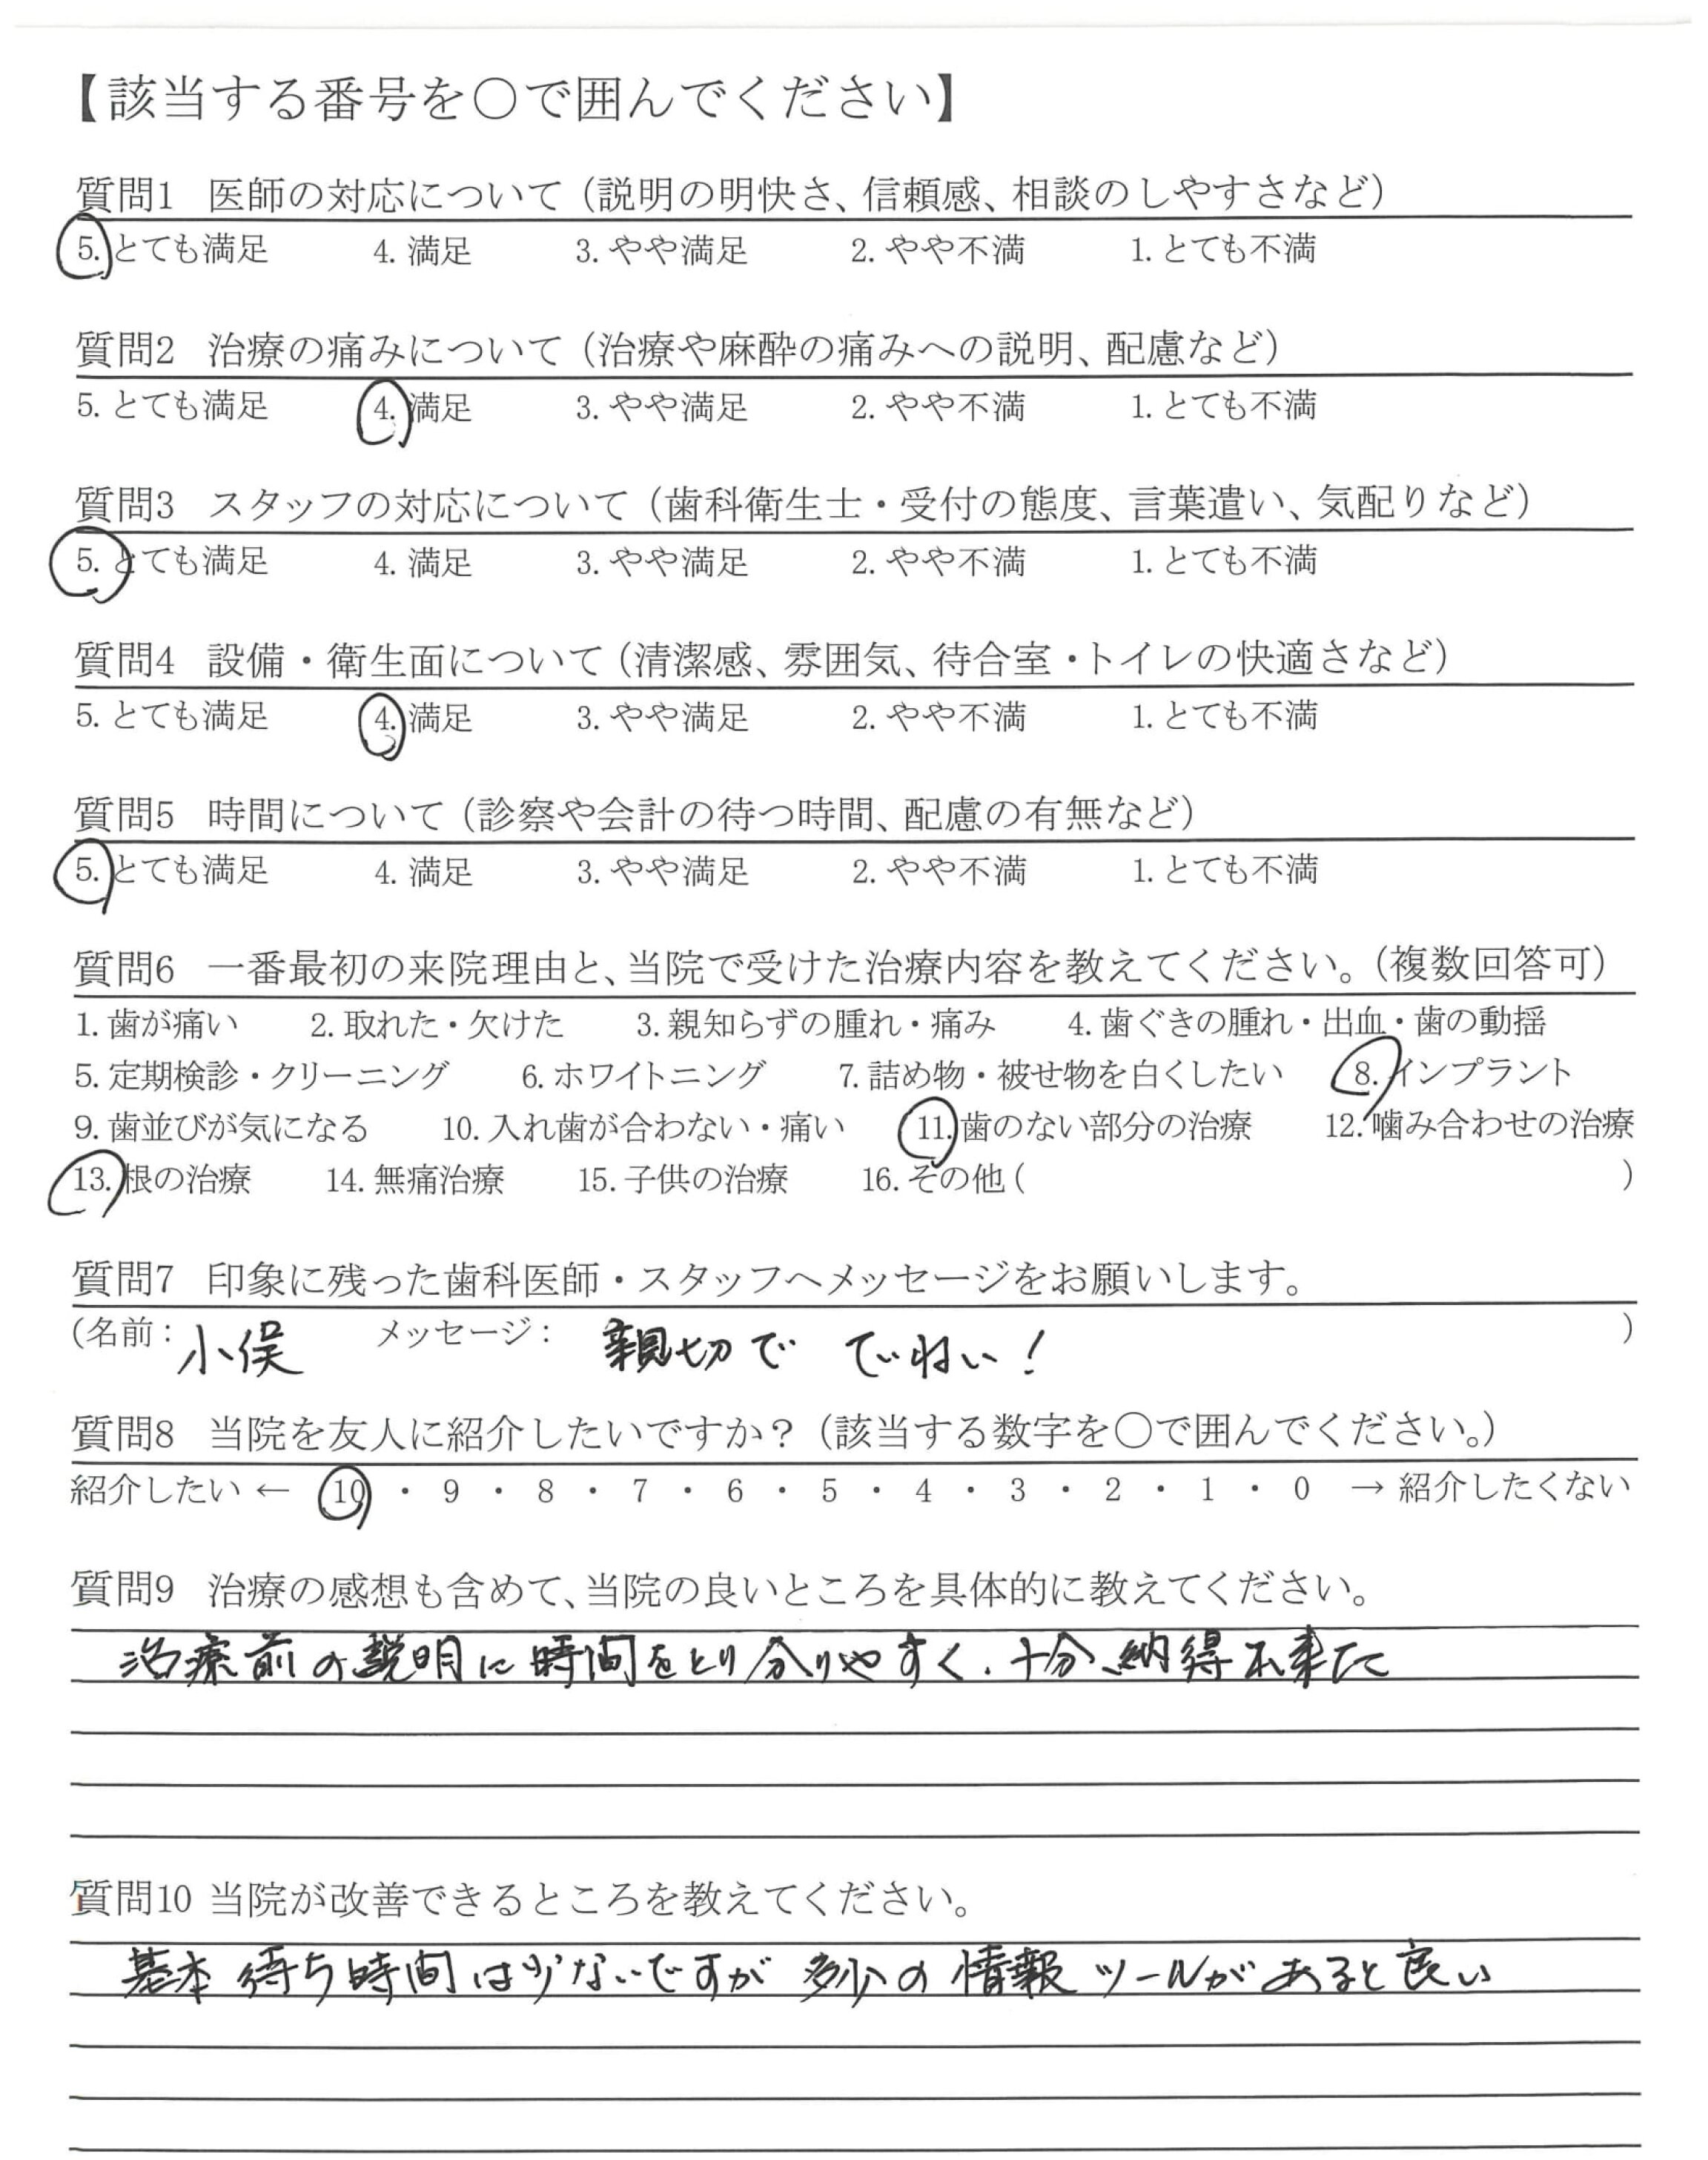 【該当する番号を〇で囲んでください】
質問1 医師の対応について（説明の明快さ、信頼感、相談のしやすさなど）
5. とても満足 4. 満足 3. やや満足 2. やや不満 1. とても不満
質問2 治療の痛みについて（治療や麻酔の痛みへの説明、配慮など）
5. とても満足 4. 満足 3. やや満足 2. やや不満 1. とても不満
質問3 スタッフの対応について（歯科衛生士・受付の態度、言葉遣い、気配りなど）
5. とても満足 4. 満足 3. やや満足 2. やや不満 1. とても不満
質問4 設備・衛生面について（清潔感、雰囲気、待合室・トイレの快適さなど）
5. とても満足 4. 満足 3. やや満足 2. やや不満 1. とても不満
質問5 時間について（診察や会計の待つ時間、配慮の有無など）
5. とても満足 4. 満足 3. やや満足 2. やや不満 1. とても不満
質問6 一番最初の来院理由と、当院で受けた治療内容を教えてください。（複数回答可）
1. 歯が痛い 2. 取れた・欠けた 3. 親知らずの腫れ・痛み 4. 歯ぐきの腫れ・出血・歯の動揺
5. 定期検診・クリーニング 6. ホワイトニング 7. 詰め物・被せ物を白くしたい 8. インプラント
9. 歯並びが気になる 10. 入れ歯が合わない・痛い 11. 歯のない部分の治療 12. 噛み合わせの治療
13. 根の治療 14. 無痛治療 15. 子供の治療 16. その他（ ）
質問7 印象に残った歯科医師・スタッフへメッセージをお願いします。
（名前： 小俣 メッセージ： 親切で ていねい！ ）
質問8 当院を友人に紹介したいですか？（該当する数字を〇で囲んでください。）
紹介したい ← 10 ・ 9 ・ 8 ・ 7 ・ 6 ・ 5 ・ 4 ・ 3 ・ 2 ・ 1 ・ 0 → 紹介したくない
質問9 治療の感想も含めて、当院の良いところを具体的に教えてください。
治療前の説明に時間をとり分りやすく、十分、納得出来た
質問10 当院が改善できるところを教えてください。
基本 待ち時間は少ないですが 多少の 情報ツールがあると良い